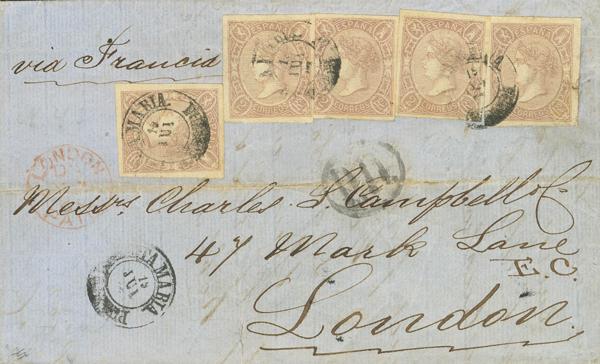 via Francia
ESPAÑA
CORREOS
ESPAÑA
CORREOS
ESPAÑA
CORREOS
ESPAÑA
CORREOS
AMARIA
15
JUL
LONDON
P.D.
Messrs Charles S. Campbell & Co
47 Mark Lane
E.C.
London
TAMARIA
15
JUL